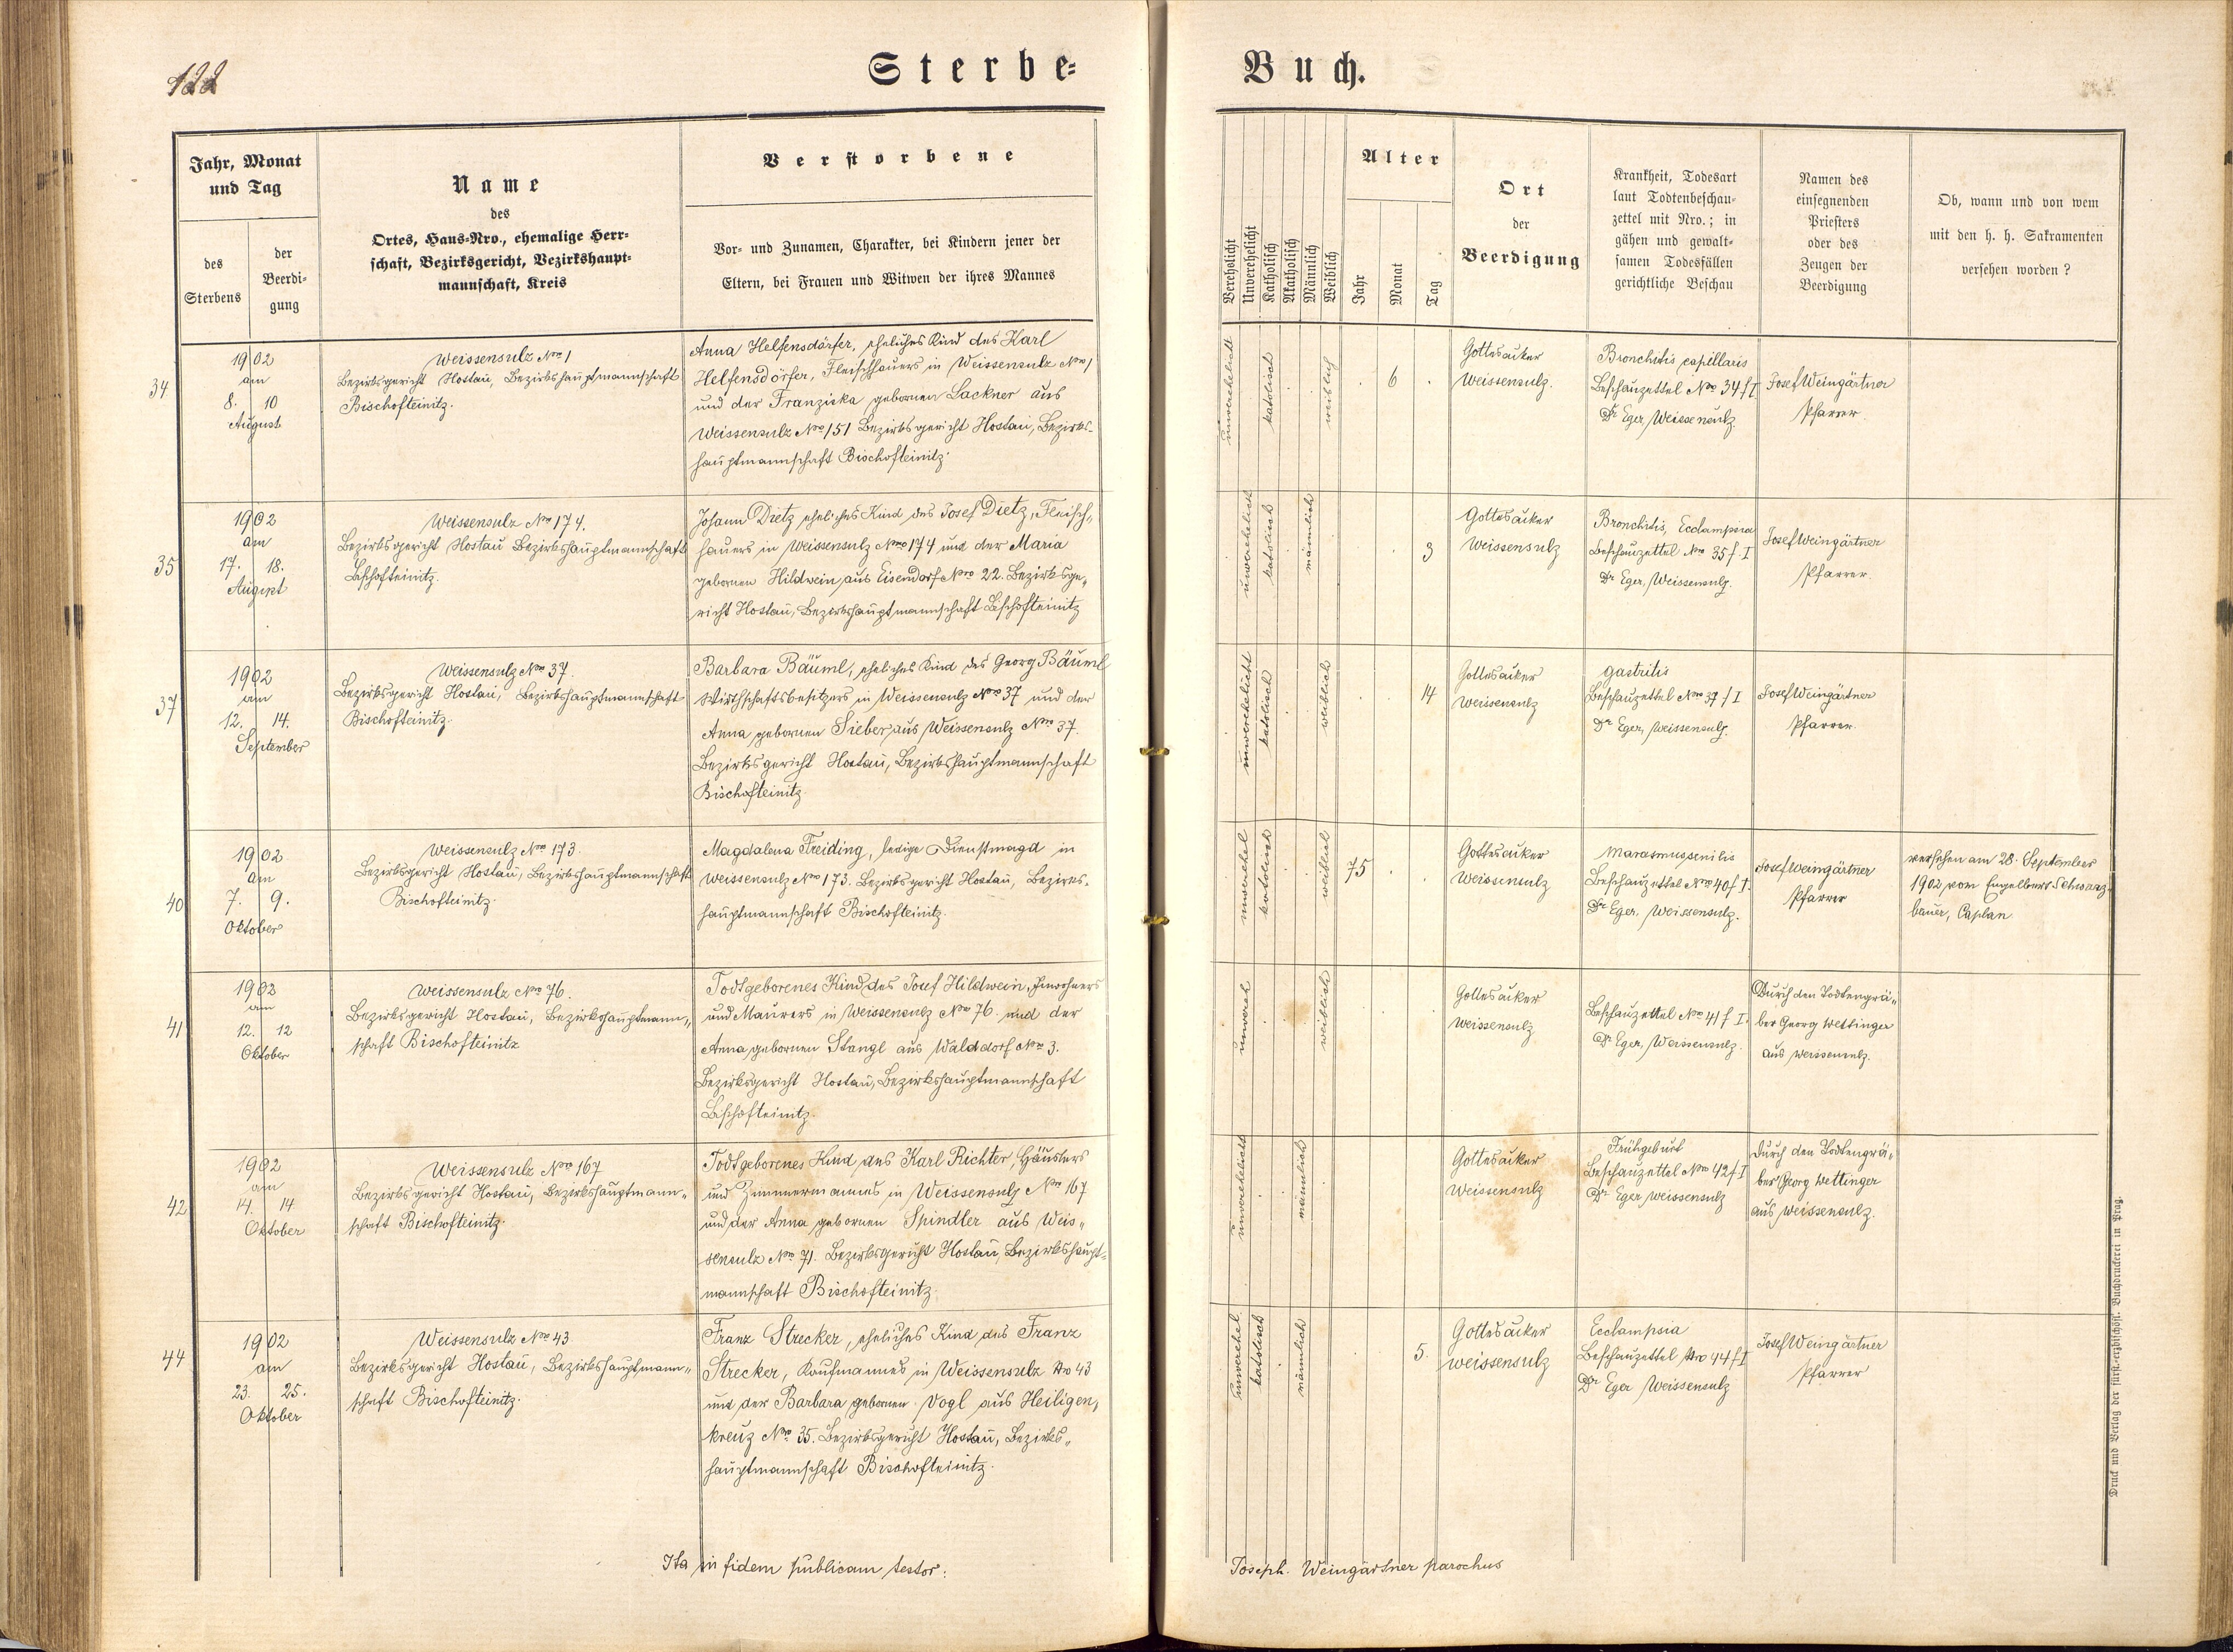 122
Sterbe=
Buch.
Jahr, Monat
und Tag
des
Sterbens
der
Beerdi=
gung
Name
des
Ortes, Haus=Nro., ehemalige Herr=
schaft, Bezirksgericht, Bezirkshaupt=
mannschaft, Kreis
Verstorbene
Vor= und Zunamen, Charakter, bei Kindern jener der
Eltern, bei Frauen und Witwen der ihres Mannes
Verehelicht
Unverehelicht
Katholisch
Akatholisch
Männlich
Weiblich
Alter
Jahr
Monat
Tag
Ort
der
Beerdigung
Krankheit, Todesart
laut Todtenbeschau=
zettel mit Nro.; in
gähen und gewalt=
samen Todesfällen
gerichtliche Beschau
Namen des
einsegnenden
Priesters
oder des
Zeugen der
Beerdigung
Ob, wann und von wem
mit den h. h. Sakramenten
versehen worden?
34
1902
am
8. 10
August
Weissensulz Nro 1
Bezirksgericht Hostau, Bezirkshauptmannschaft
Bischofteinitz.
Anna Helfensdörfer, eheliches Kind des Karl
Helfensdörfer, Fleischhauers in Weissensulz Nro 1
und der Franziska gebornen Lackner aus
Weissensulz Nro 151 Bezirksgericht Hostau, Bezirks-
hauptmannschaft Bischofteinitz.
unverehelicht
katolisch
weiblich
6
Gottesacker
Weissensulz.
Bronchitis capillaris
Beschauzettel Nro 34 f I
Dr Eger, Weissensulz
Josef Weingärtner
Pfarrer.
35
1902
am
17. 18.
August
Weissensulz Nro 174.
Bezirksgericht Hostau Bezirkshauptmannschaft
Bischofteinitz.
Johann Dietz, eheliches Kind des Josef Dietz, Fleisch„
hauers in Weissensulz Nro 174 und der Maria
gebornen Hildwein, aus Eisendorf Nro 22. Bezirksge„
richt Hostau, Bezirkshauptmannschaft Bischofteinitz
unverehelicht
katolisch
männlich
3
Gottesacker
Weissensulz
Bronchitis, Ecclampsia
Beschauzettel Nro 35 f. I
Dr Eger, Weissensulz.
Josef Weingärtner
Pfarrer.
37
1902
am
12. 14.
September
Weissensulz Nro 37.
Bezirksgericht Hostau, Bezirkshauptmannschaft
Bischofteinitz.
Barbara Bäuml, eheliches Kind des Georg Bäuml
Wirthschaftsbesitzers in Weissensulz Nro 37 und der
Anna gebornen Sieber, aus Weissensulz Nro 37.
Bezirksgericht Hostau, Bezirkshauptmannschaft
Bischofteinitz.
unverehelicht
katolisch
weiblich
14
Gottesacker
Weissensulz
Gastritis
Beschauzettel Nro 37 f I
Dr Eger, Weissensulz.
Josef Weingärtner
Pfarrer
40
1902
am
7. 9.
Oktober
Weissensulz Nro 173.
Bezirksgericht Hostau, Bezirkshauptmannschaft
Bischofteinitz.
Magdalena Freiding, ledige Dienstmagd in
Weissensulz Nro 173. Bezirksgericht Hostau, Bezirks-
hauptmannschaft Bischofteinitz.
unverehel
katolisch
weiblich
75
Gottesacker
Weissensulz
Marasmus senilis
Beschauzettel Nro 40 f I.
Dr Eger, Weissensulz.
Josef Weingärtner
Pfarrer
versehen am 28. September
1902 vom Engelbert Schwarz-
bauer, Caplan
41
1902
am
12. 12
Oktober
Weissensulz Nro 76.
Bezirksgericht Hostau, Bezirkshauptmann„
schaft Bischofteinitz
Todtgeborenes Kind des Josef Hildwein, Inwohners
und Maurers in Weissensulz Nro 76 und der
Anna gebornen Stangl aus Walddorf Nro 3.
Bezirksgericht Hostau, Bezirkshauptmannschaft
Bischofteinitz.
unvereh
weiblich
Gottesacker
Weissensulz
Beschauzettel Nro 41 f I.
Dr Eger, Weissensulz.
Durch den Todtengrä„
ber Georg Wettinger
aus Weissensulz.
42
1902
am
14. 14
Oktober
Weissensulz Nro 167
Bezirksgericht Hostau, Bezirkshauptmann„
schaft Bischofteinitz.
Todtgeborenes Kind des Karl Richter, Häuslers
und Zimmermannes in Weissensulz Nro 167
und der Anna gebornen Spindler aus Weis„
sensulz Nro 71. Bezirksgericht Hostau, Bezirkshaupt=
mannschaft Bischofteinitz.
unverehelicht
männlich
Gottesacker
Weissensulz
Frühgeburt
Beschauzettel Nro 42 f I
Dr Eger Weissensulz
Durch den Todtengrä„
ber Georg Wettinger
aus Weissensulz.
44
1902
am
23. 25.
Oktober
Weissensulz Nro 43
Bezirksgericht Hostau, Bezirkshauptmann„
schaft Bischofteinitz.
Franz Strecker, eheliches Kind des Franz
Strecker, Kaufmannes in Weissensulz Nro 43
und der Barbara gebornen Vogl aus Heiligen„
kreuz Nro 35. Bezirksgericht Hostau, Bezirks„
hauptmannschaft Bischofteinitz.
unverehel.
katolisch
männlich
5.
Gottesacker
Weissensulz
Ecclampsia
Beschauzettel Nro 44 f I
Dr Eger Weissensulz
Josef Weingärtner
Pfarrer
Ita in fidem publicam testor:
Joseph. Weingärtner parochus
Druck und Verlag der fürst.=erzbischöfl. Buchdruckerei in Prag.